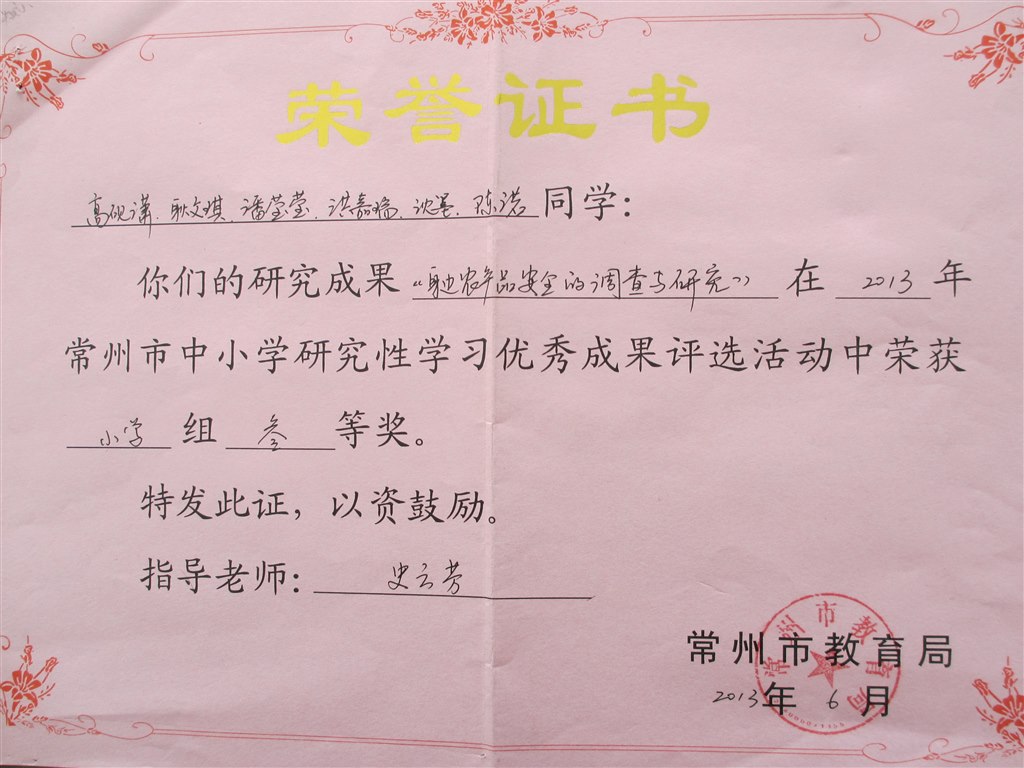 荣誉证书
高砚潇、耿文琪、潘莹莹、洪嘉瑞、沈、陈诺同学:
你们的研究成果“身边农产品安全的调查与研究”在2013年
常州市中小学研究性学习优秀成果评选活动中荣获
小学组叁等奖。
特发此证，以资鼓励。
指导老师:史云芳
常州市教育局
2013年6月
常州市教育局